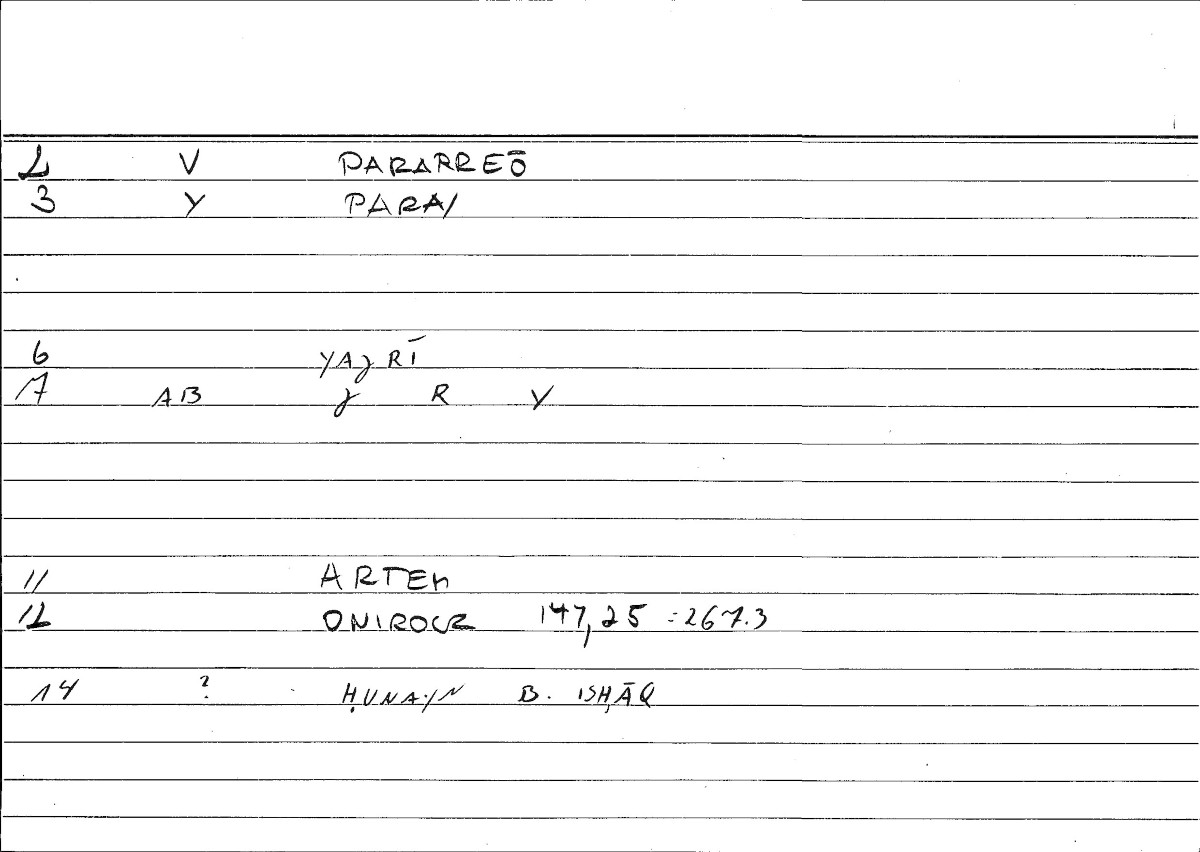 2 V PARARREŌ
3 Y PARA/
6 YAJRĪ
7 AB J R Y
11 ARTEM
12 ONIROCR 147,25 = 267.3
14 ? ḤUNAYN B. ISḤĀQ